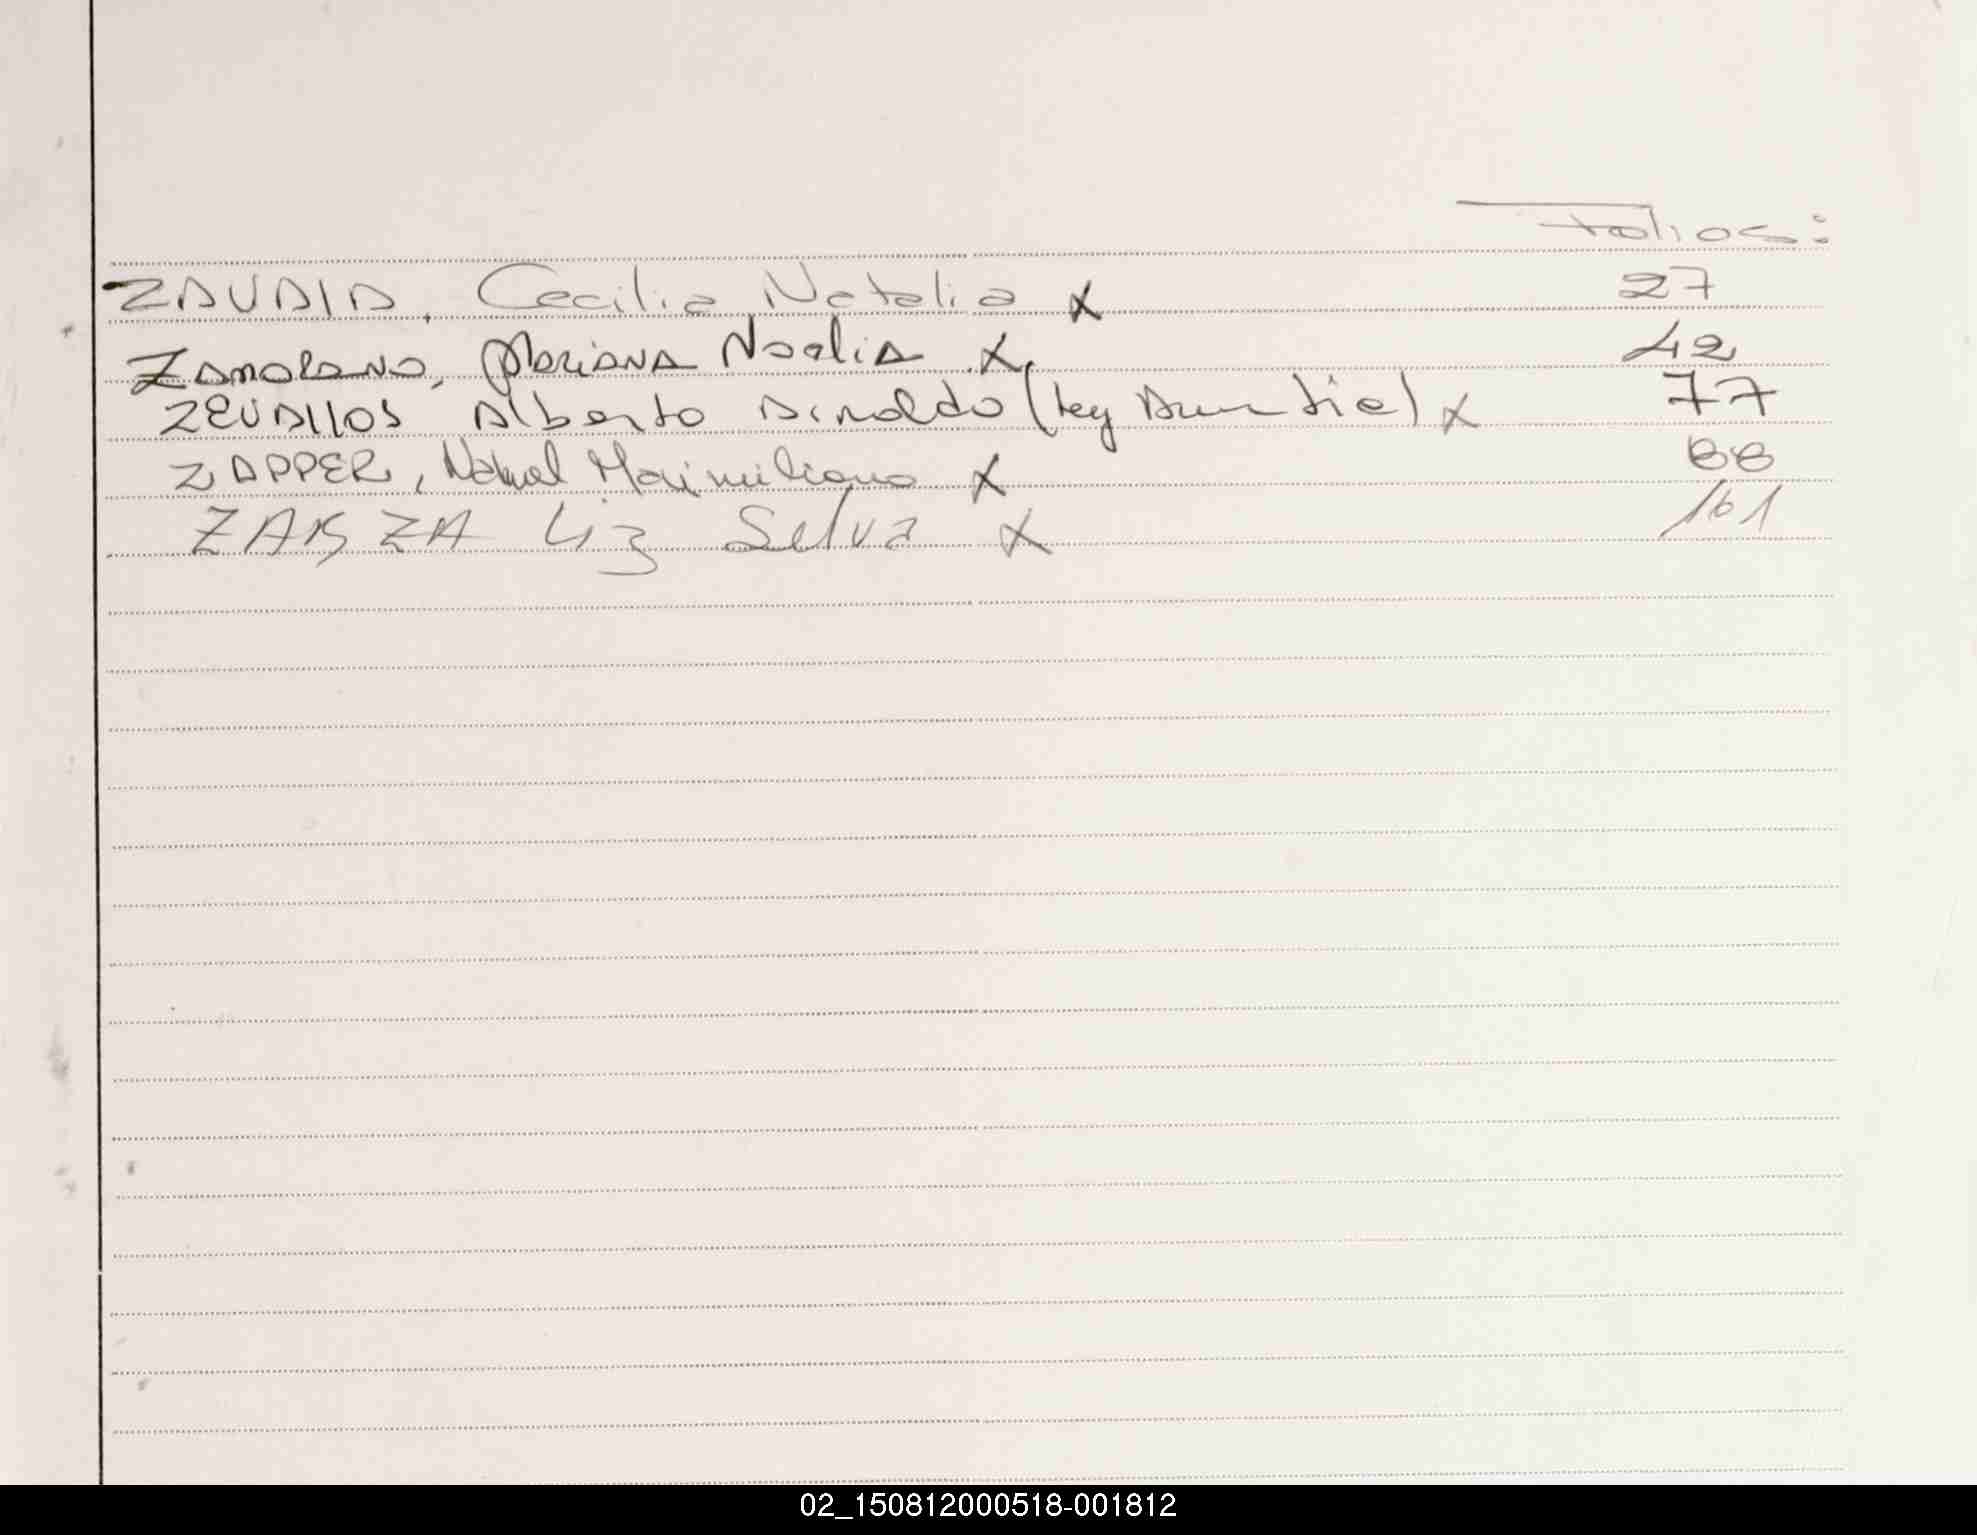 Folios:
ZAVALA, Cecilia Natalia X 27
ZAMORANO, Mariana Noelia X 42
ZEVALLOS Alberto Arnoldo (Ley Ausentia) X 77
ZAPPER, Nahuel Maximiliano X 88
ZARZA Liz Selva X 161
02_150812000518-001812